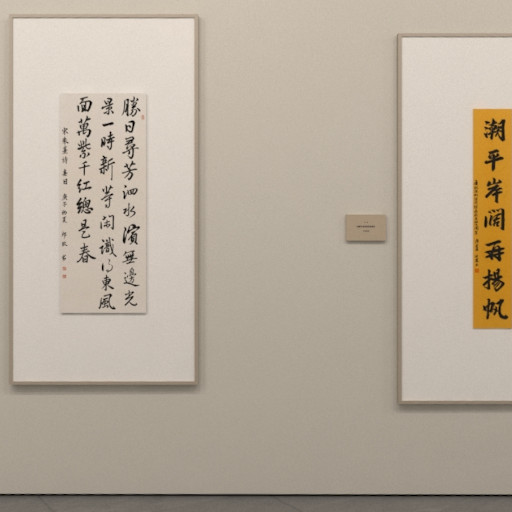 勝日尋芳泗水濱無邊光
景一時新等閑識得東風
面萬紫千红總是春
宋朱熹詩 春日 庚子初夏
潮平岸闊再揚帆